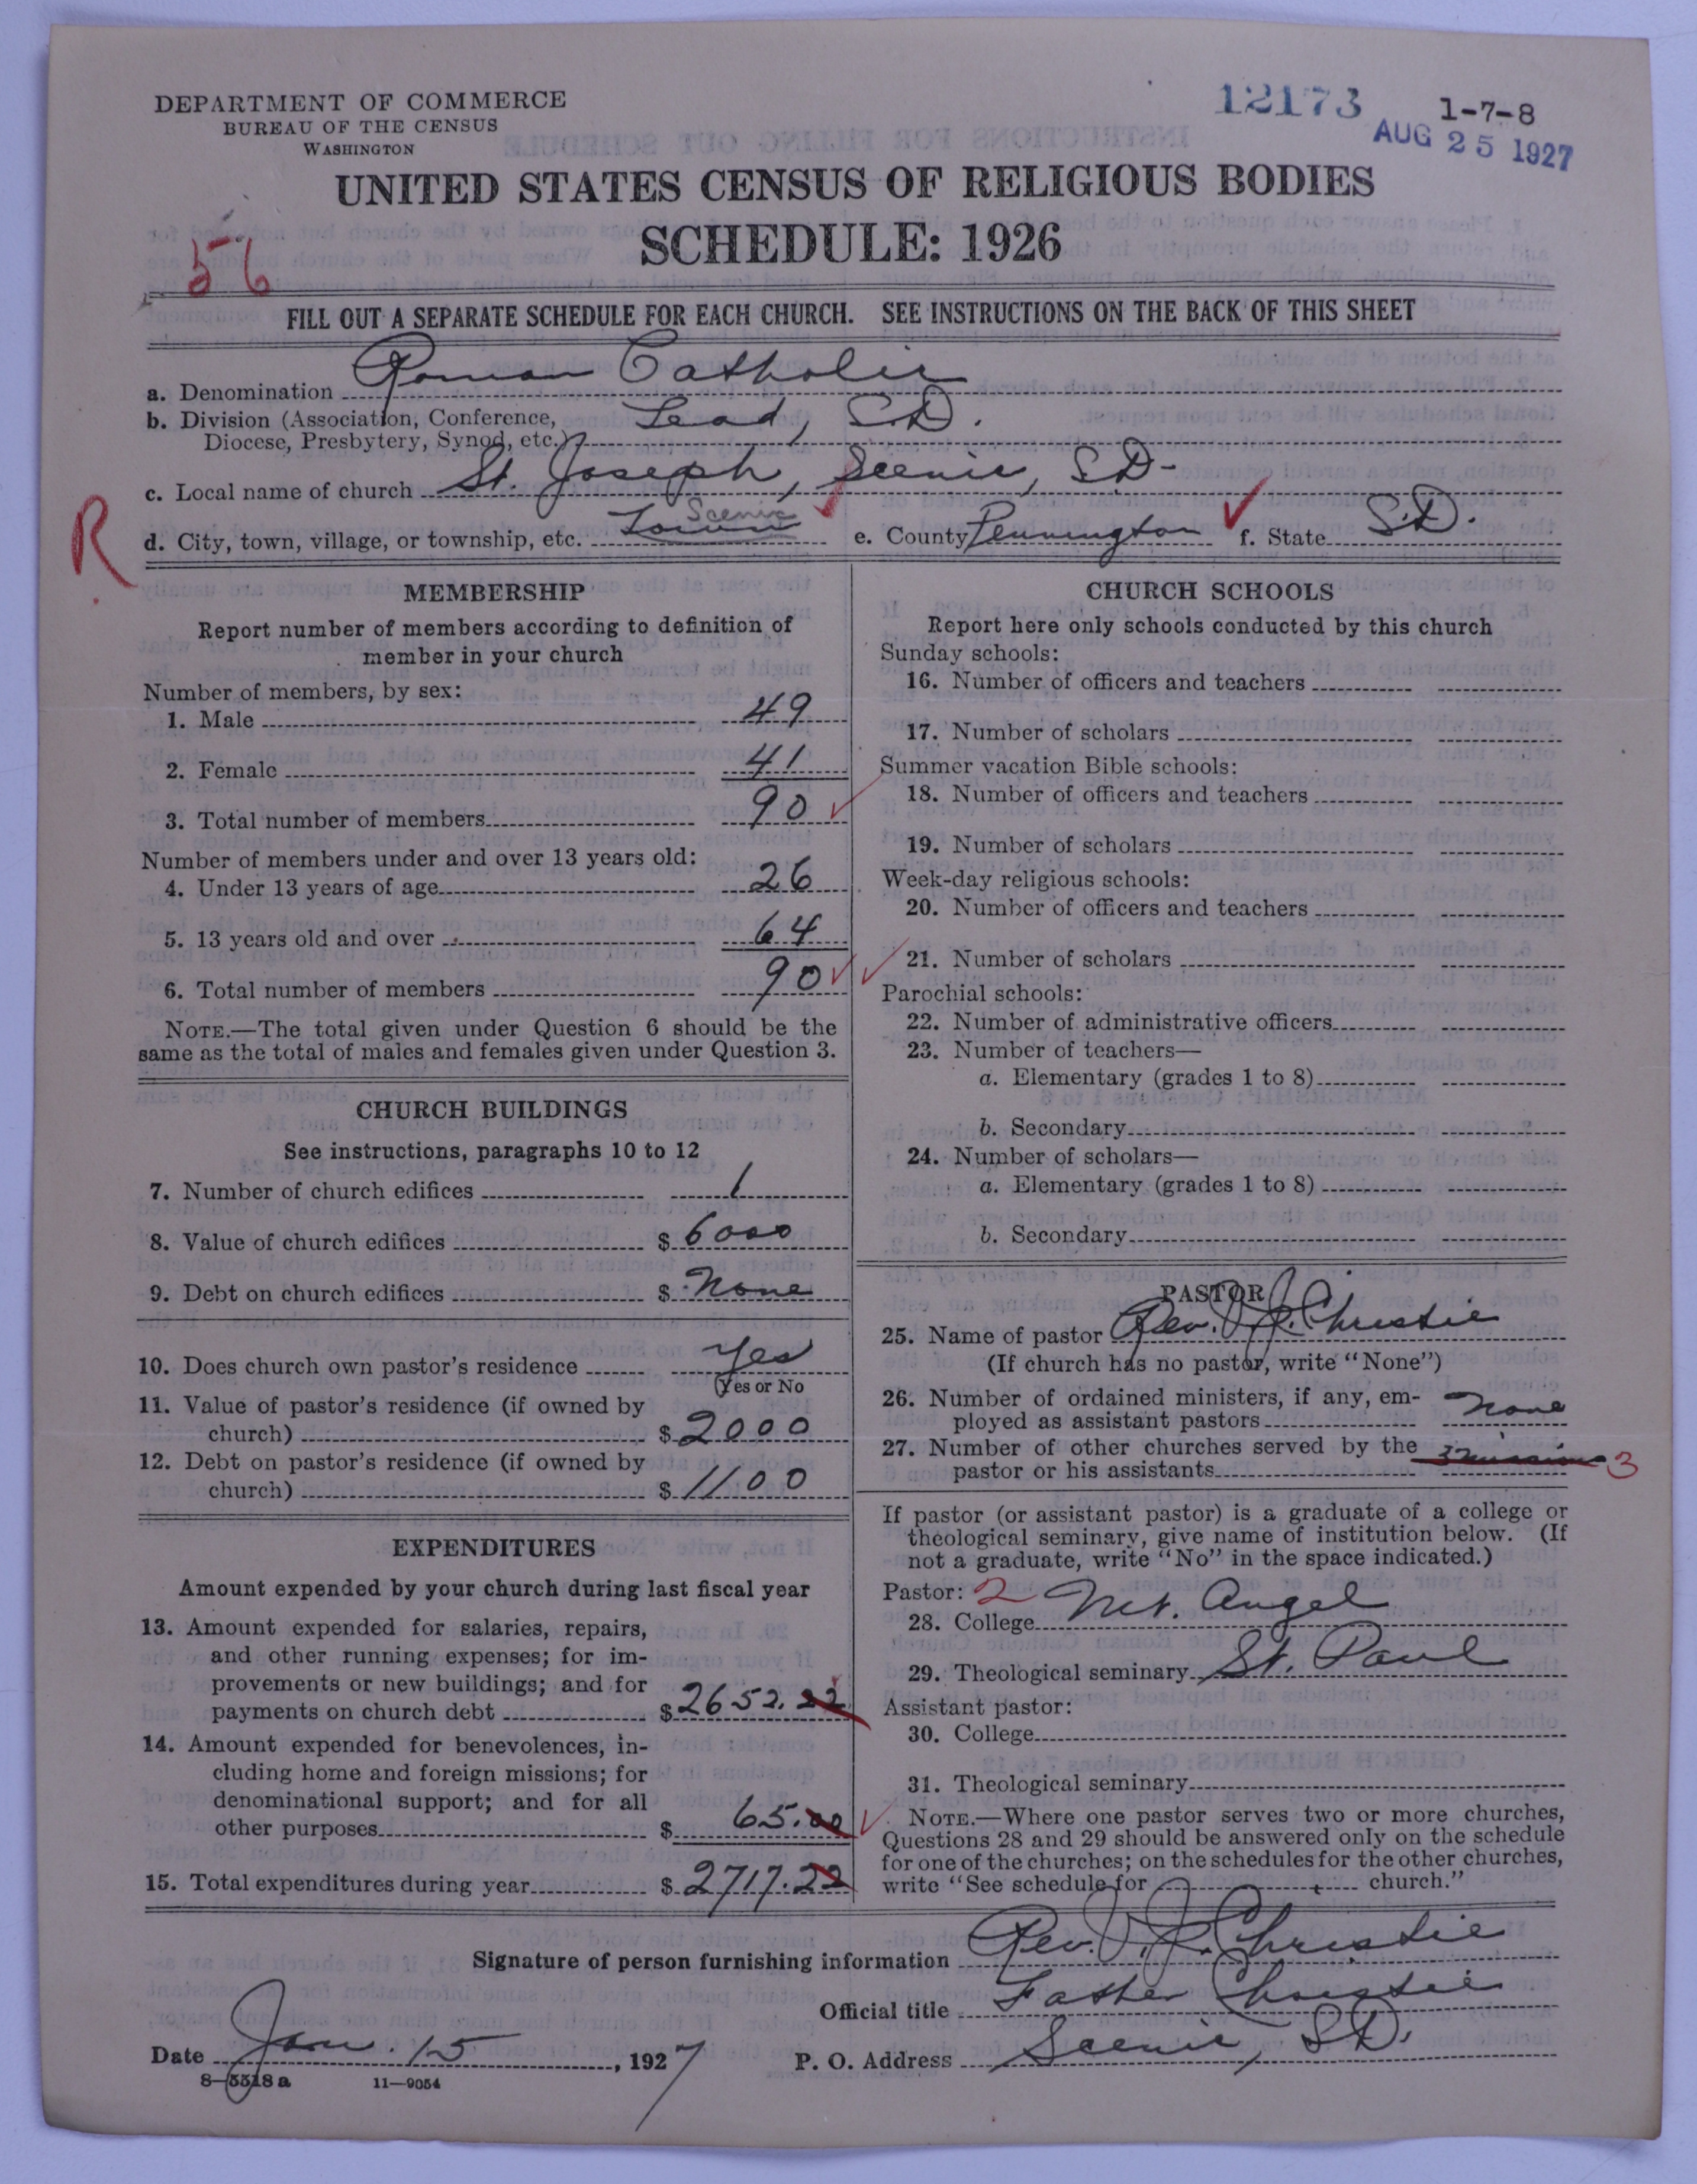 DEPARTMENT OF COMMERCE
BUREAU OF THE CENSUS
WASHINGTON
12173
1-7-8
AUG 25 1927
UNITED STATES CENSUS OF RELIGIOUS BODIES
SCHEDULE: 1926
56
FILL OUT A SEPARATE SCHEDULE FOR EACH CHURCH. SEE INSTRUCTIONS ON THE BACK OF THIS SHEET
a. Denomination Roman Catholic
b. Division (Association, Conference, Diocese, Presbytery, Synod, etc.) Lead, S.D.
c. Local name of church St. Joseph, Scenic, S.D.
R
d. City, town, village, or township, etc. Town Scenic e. County Pennington f. State S.D.
MEMBERSHIP
Report number of members according to definition of
member in your church
Number of members, by sex:
1. Male 49
2. Female 41
3. Total number of members 90
Number of members under and over 13 years old:
4. Under 13 years of age 26
5. 13 years old and over 64
6. Total number of members 90
NOTE.—The total given under Question 6 should be the
same as the total of males and females given under Question 3.
CHURCH BUILDINGS
See instructions, paragraphs 10 to 12
7. Number of church edifices 1
8. Value of church edifices $ 6000
9. Debt on church edifices $ None
10. Does church own pastor's residence Yes
(Yes or No
11. Value of pastor's residence (if owned by
church) $ 2000
12. Debt on pastor's residence (if owned by
church) $ 1100
EXPENDITURES
Amount expended by your church during last fiscal year
13. Amount expended for salaries, repairs,
and other running expenses; for im-
provements or new buildings; and for
payments on church debt $ 2652.22
14. Amount expended for benevolences, in-
cluding home and foreign missions; for
denominational support; and for all
other purposes $ 65.00
15. Total expenditures during year $ 2717.22
CHURCH SCHOOLS
Report here only schools conducted by this church
Sunday schools:
16. Number of officers and teachers
17. Number of scholars
Summer vacation Bible schools:
18. Number of officers and teachers
19. Number of scholars
Week-day religious schools:
20. Number of officers and teachers
21. Number of scholars
Parochial schools:
22. Number of administrative officers
23. Number of teachers—
a. Elementary (grades 1 to 8)
b. Secondary
24. Number of scholars—
a. Elementary (grades 1 to 8)
b. Secondary
PASTOR
25. Name of pastor Rev. P. J. Christie
(If church has no pastor, write "None")
26. Number of ordained ministers, if any, em-
ployed as assistant pastors None
27. Number of other churches served by the
pastor or his assistants 3 missions 3
If pastor (or assistant pastor) is a graduate of a college or
theological seminary, give name of institution below. (If
not a graduate, write "No" in the space indicated.)
Pastor: 2
28. College Mt. Angel
29. Theological seminary St. Paul
Assistant pastor:
30. College
31. Theological seminary
NOTE.—Where one pastor serves two or more churches,
Questions 28 and 29 should be answered only on the schedule
for one of the churches; on the schedules for the other churches,
write "See schedule for church."
Signature of person furnishing information Rev. P. J. Christie
Official title Father Christie
Date Jan. 15, 1927 P. O. Address Scenic, S.D.
8-5518a 11—9054